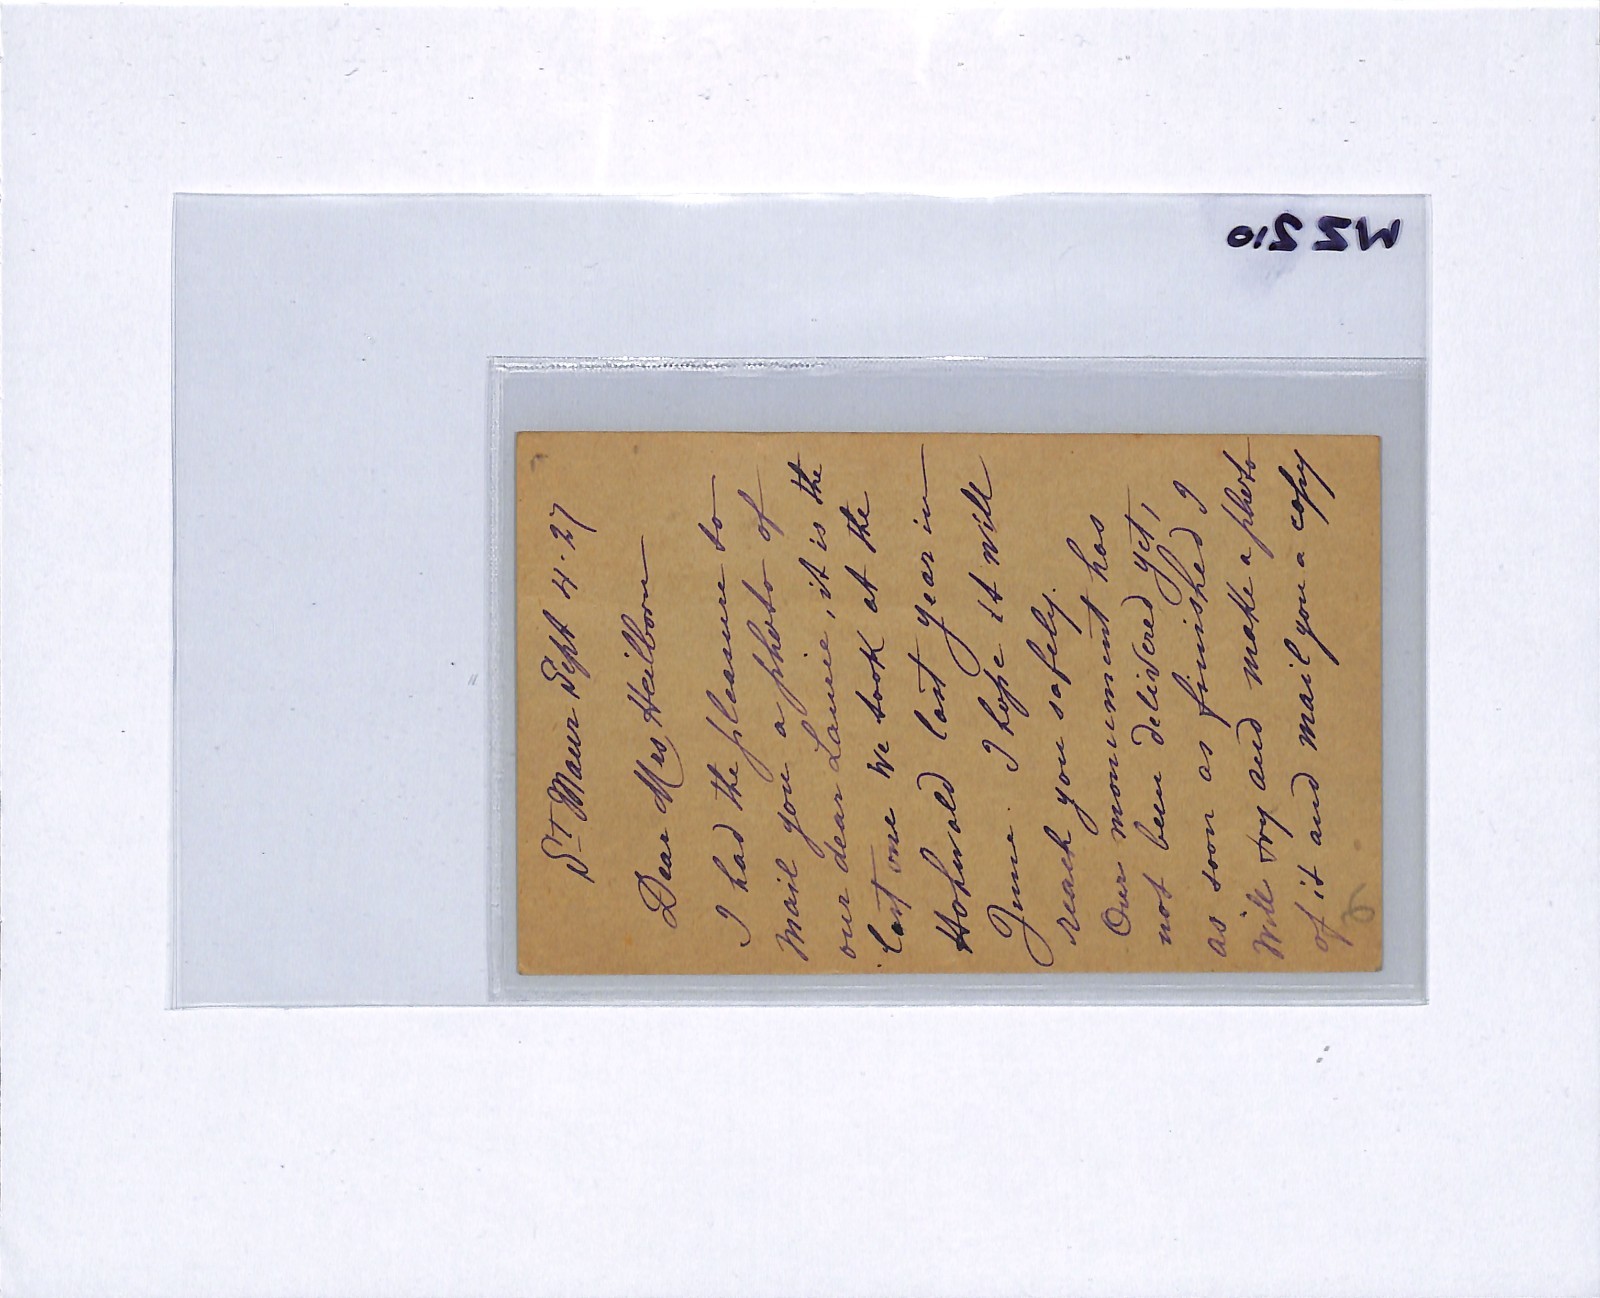 St Maur Sept 4.27
Dear Mrs Heilborn
I had the pleasure to
mail you a photo of
our dear Lannie, it is the
last one we took at the
Hohwald last year in
June. I hope it will
reach you safely.
Our monument has
not been delivered yet,
as soon as finished I
will try and make a photo
of it and mail you a copy
6